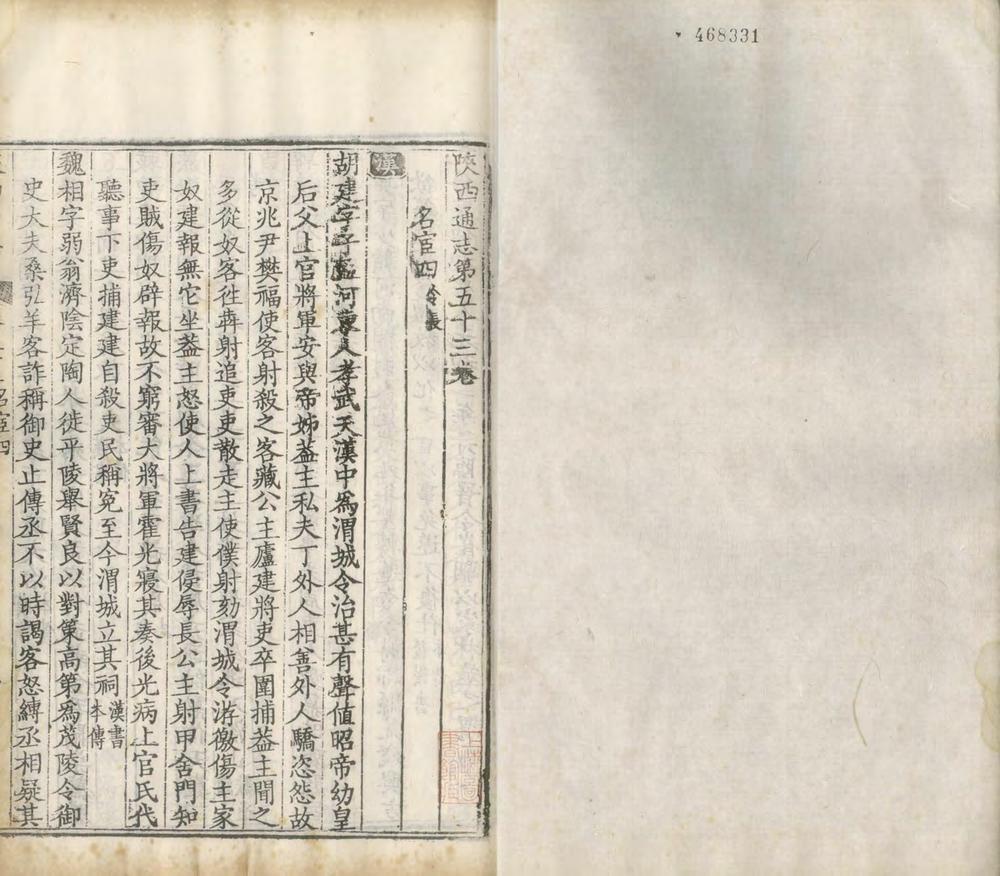 468331
陜西通志第五十三卷
名宦四 令長
漢
胡建字子孟河東人孝武天漢中爲渭城令治甚有聲値昭帝幼皇
后父上官將軍安與帝姊葢主私夫丁外人相善外人驕恣怨故
京兆尹樊福使客射殺之客藏公主廬建將吏卒圍捕葢主聞之
多從奴客徃犇射追吏吏散走主使僕射劾渭城令游徼傷主家
奴建報無它坐葢主怒使人上書告建侵辱長公主射甲舍門知
吏賊傷奴辟報故不窮審大將軍霍光寢其奏後光病上官氏代
聽事下吏捕建建自殺吏民稱寃至今渭城立其祠 漢書本傳
魏相字弱翁濟陰定陶人徙平陵舉賢良以對策高第爲茂陵令御
史大夫桑弘羊客詐稱御史止傳丞不以時謁客怒縛丞相疑其
名宦四